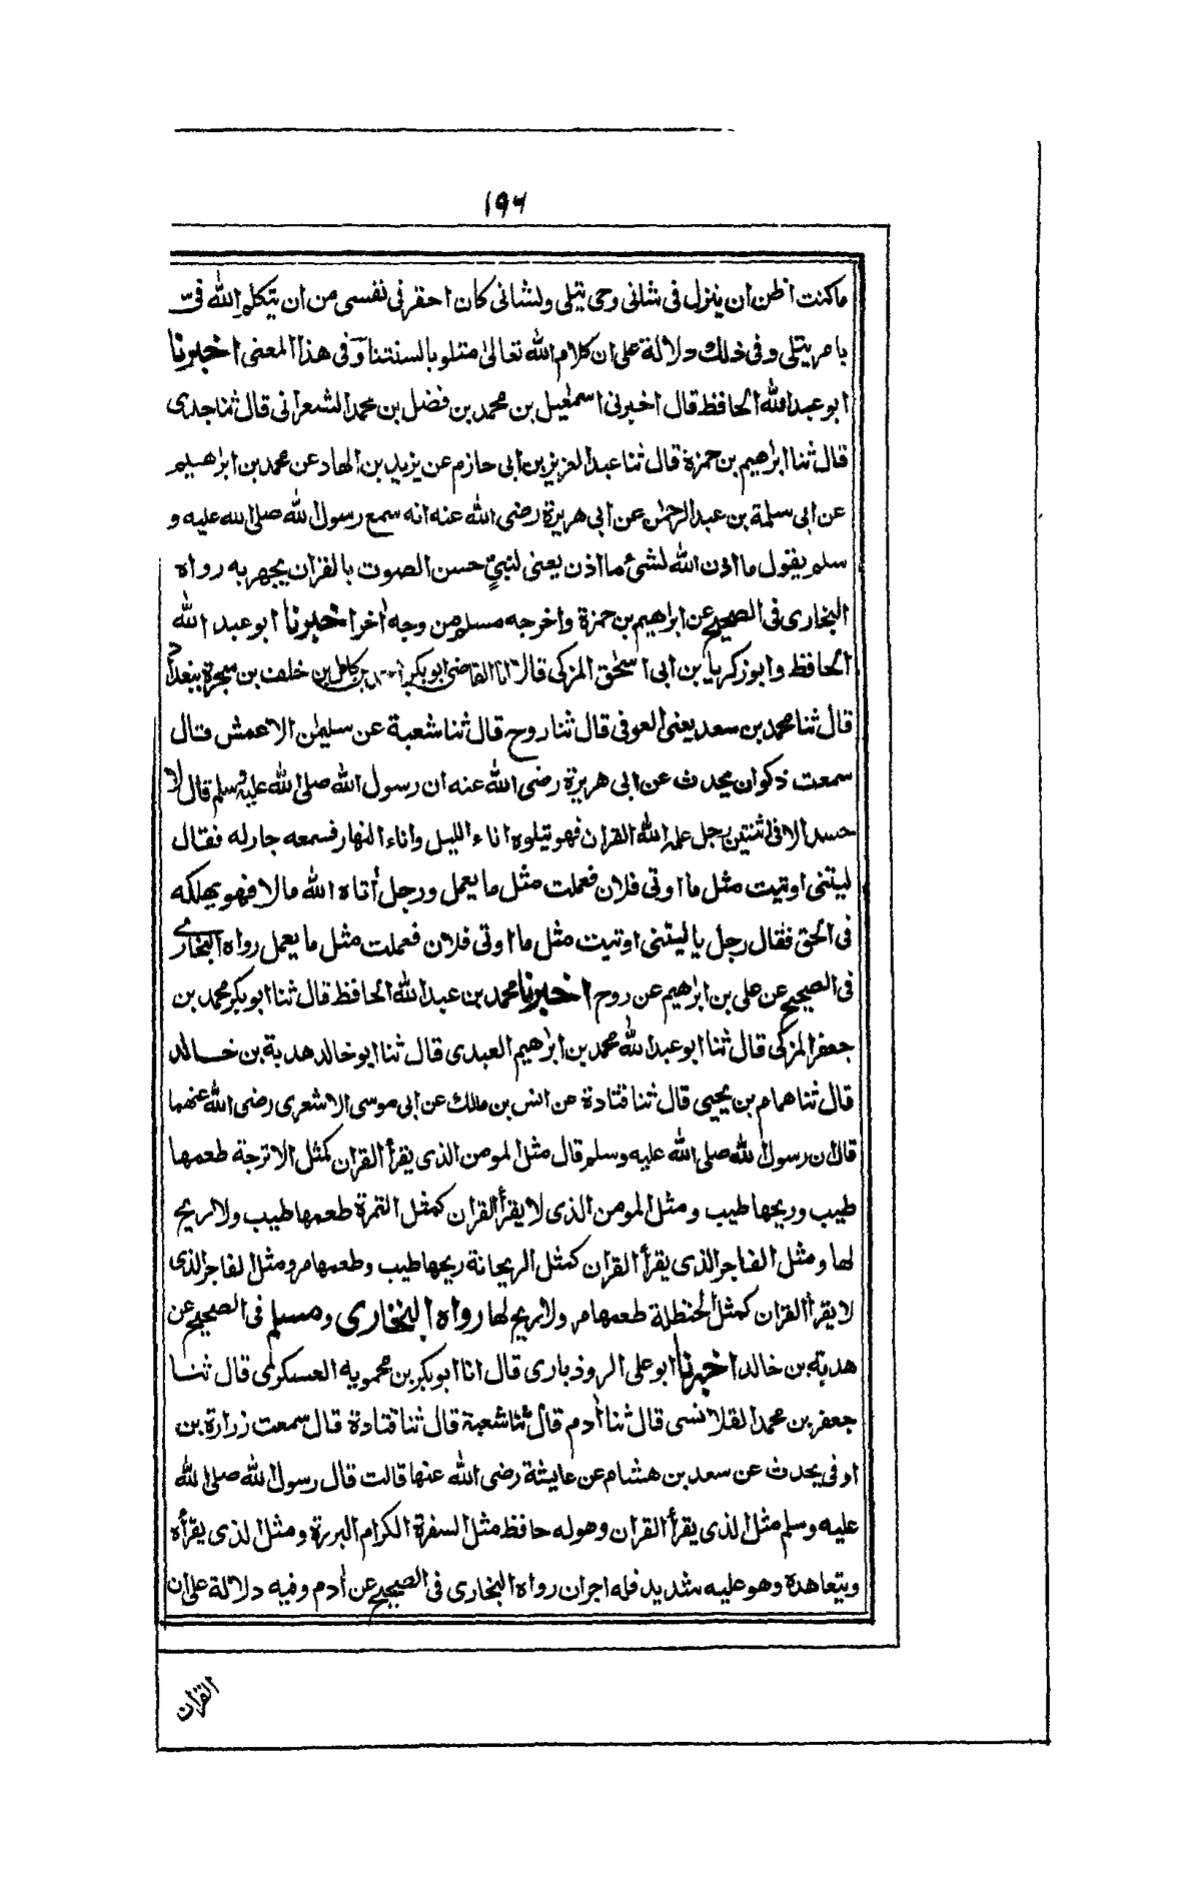 ١٩٦
ماكنت اظن ان ينزل فى شانى وحى يتلى ولشانى كان احقر فى نفسى من ان يتكلم الله فىّ
بامر يتلى وفى ذلك دلالة على ان كلام الله تعالىٰ متلو بالسنتنا وفى هذا المعنى اخبرنا
ابو عبد الله الحافظ قال اخبرنى اسمٰعيل بن محمد بن فضل بن محمد الشعرانى قال ثنا جدى
قال ثنا ابراهيم بن حمزة قال ثنا عبد العزيز بن ابى حازم عن يزيد بن الهاد عن محمد بن ابراهيم
عن ابى سلمة بن عبد الرحمٰن عن ابى هريرة رضى الله عنه انه سمع رسول الله صلى الله عليه و
سلم يقول ما اذن الله لشئ ما اذن يعنى لنبىٍ حسن الصوت بالقران يجهر به رواه
البخارى فى الصحيح عن ابراهيم بن حمزة واخرجه مسلم من وجه اٰخر اخبرنا ابو عبد الله
الحافظ وابو زكريا بن ابى اسحٰق المزكى قالا انا القاضى ابو بكر احمد بن كامل بن خلف بن شجرة ببغداد
قال ثنا محمد بن سعد يعنى العوفى قال ثنا روح قال ثنا شعبة عن سليمٰن الاعمش قال
سمعت ذكوان يحدث عن ابى هريرة رضى الله عنه ان رسول الله صلى الله عليه وسلم قال لا
حسد الا فى اثنتين رجل علمه الله القران فهو يتلوه اناء الليل واناء النهار فسمعه جار له فقال
ليتنى اوتيت مثل ما اوتى فلان فعملت مثل ما يعمل ورجل أتاه الله مالا فهو يهلكه
فى الحق فقال رجل يا ليتنى اوتيت مثل ما اوتى فلان فعملت مثل ما يعمل رواه البخارى
فى الصحيح عن على بن ابراهيم عن روح اخبرنا محمد بن عبد الله الحافظ قال ثنا ابو بكر محمد بن
جعفر المزكى قال ثنا ابو عبد الله محمد بن ابراهيم العبدى قال ثنا ابو خالد هدبة بن خالد
قال ثنا همام بن يحيى قال ثنا قتادة عن انس بن مالك عن ابى موسى الاشعرى رضى الله عنهما
قال ان رسول الله صلى الله عليه وسلم قال مثل المومن الذى يقرأ القران كمثل الاترجة طعمها
طيب وريحها طيب ومثل المومن الذى لا يقرأ القران كمثل التمرة طعمها طيب ولا ريح
لها ومثل الفاجر الذى يقرأ القران كمثل الريحانة ريحها طيب وطعمها مر ومثل الفاجر الذى
لا يقرأ القران كمثل الحنظلة طعمها مر ولا ريح لها رواه البخارى ومسلم فى الصحيح عن
هدبة بن خالد اخبرنا ابو على الروذبارى قال انا ابو بكر بن محمويه العسكرى قال ثنا
جعفر بن محمد القلانسى قال ثنا أدم قال ثنا شعبة قال ثنا قتادة قال سمعت زرارة بن
اوفى يحدث عن سعد بن هشام عن عايشة رضى الله عنها قالت قال رسول الله صلى الله
عليه وسلم مثل الذى يقرأ القران وهو له حافظ مثل السفرة الكرام البررة ومثل الذى يقرأه
ويتعاهدة وهو عليه شديد فله اجران رواه البخارى فى الصحيح عن أدم وفيه دلالة على ان
القران